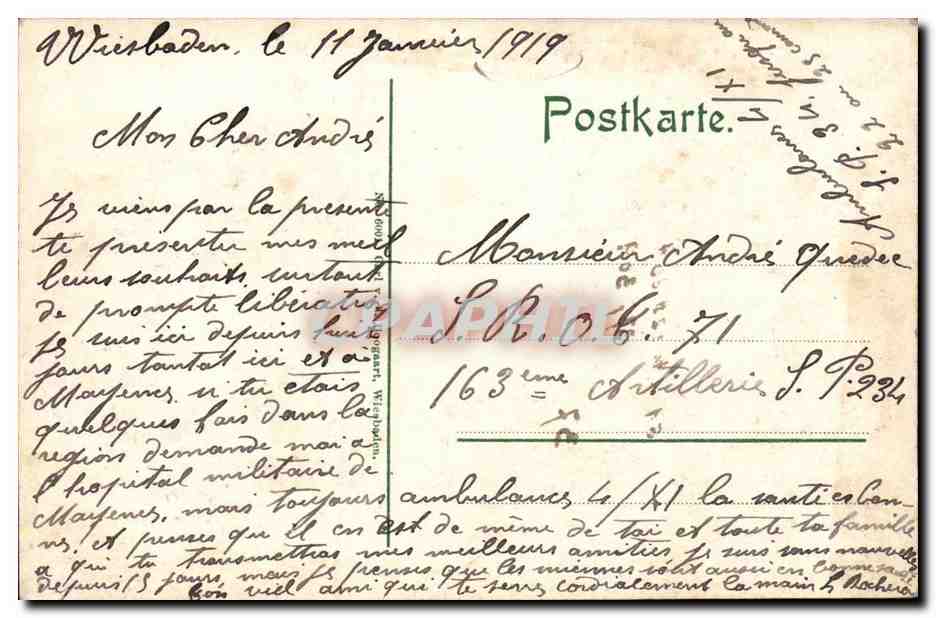 Wiesbaden, le 11 Janvier 1919
Mon Cher André
Je viens par la presente
te presenter mes meil
leurs souhaits, surtout
de prompte libération
je suis ici depuis huit
jours tantot ici et à
Mayence, si tu etais
quelques fois dans la
region demande moi a
l'hopital militaire de
Mayence, mais toujours ambulance 4/XI la santé est bon-
ne, et penses qu'il en est de même de toi et toute ta famille
a qui tu transmettras mes meilleurs amitiés je suis sans nouvelles
depuis 15 jours, mais je penses que les miennes sont aussi en bonne santé
Ton vieil ami qui te serre cordialement la main
Postkarte.
Ambulance 4/XI
S. P. 34, jusqu'au
22 ou 25 courant
Monsieur André Quedec
S. R. O. T. 71
163eme Artillerie S. P. 234
Wiesbaden.
CPAPHIL